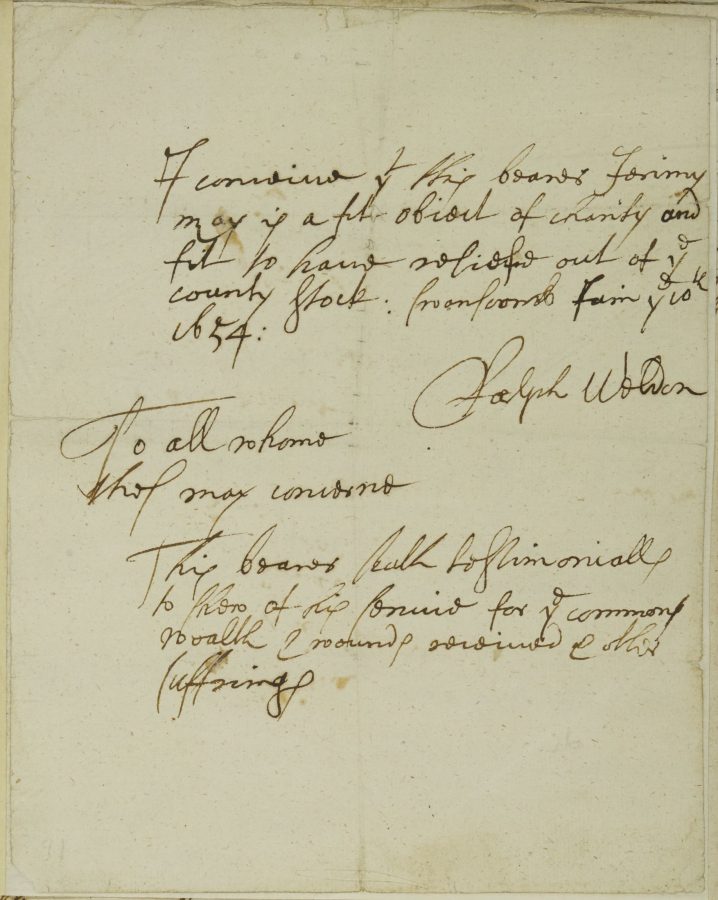 I conceive yt this bearer Jerimy
may is a fit obiect of charity and
fit to have reliefe out of ye
county stock: Swanscomb Jain ye 10th
1654:
Ralph Weldon
To all whome
thes may concerne
This bearer hath testimonialls
to shew of his service for ye common
wealth & wounds received & other
suffrings